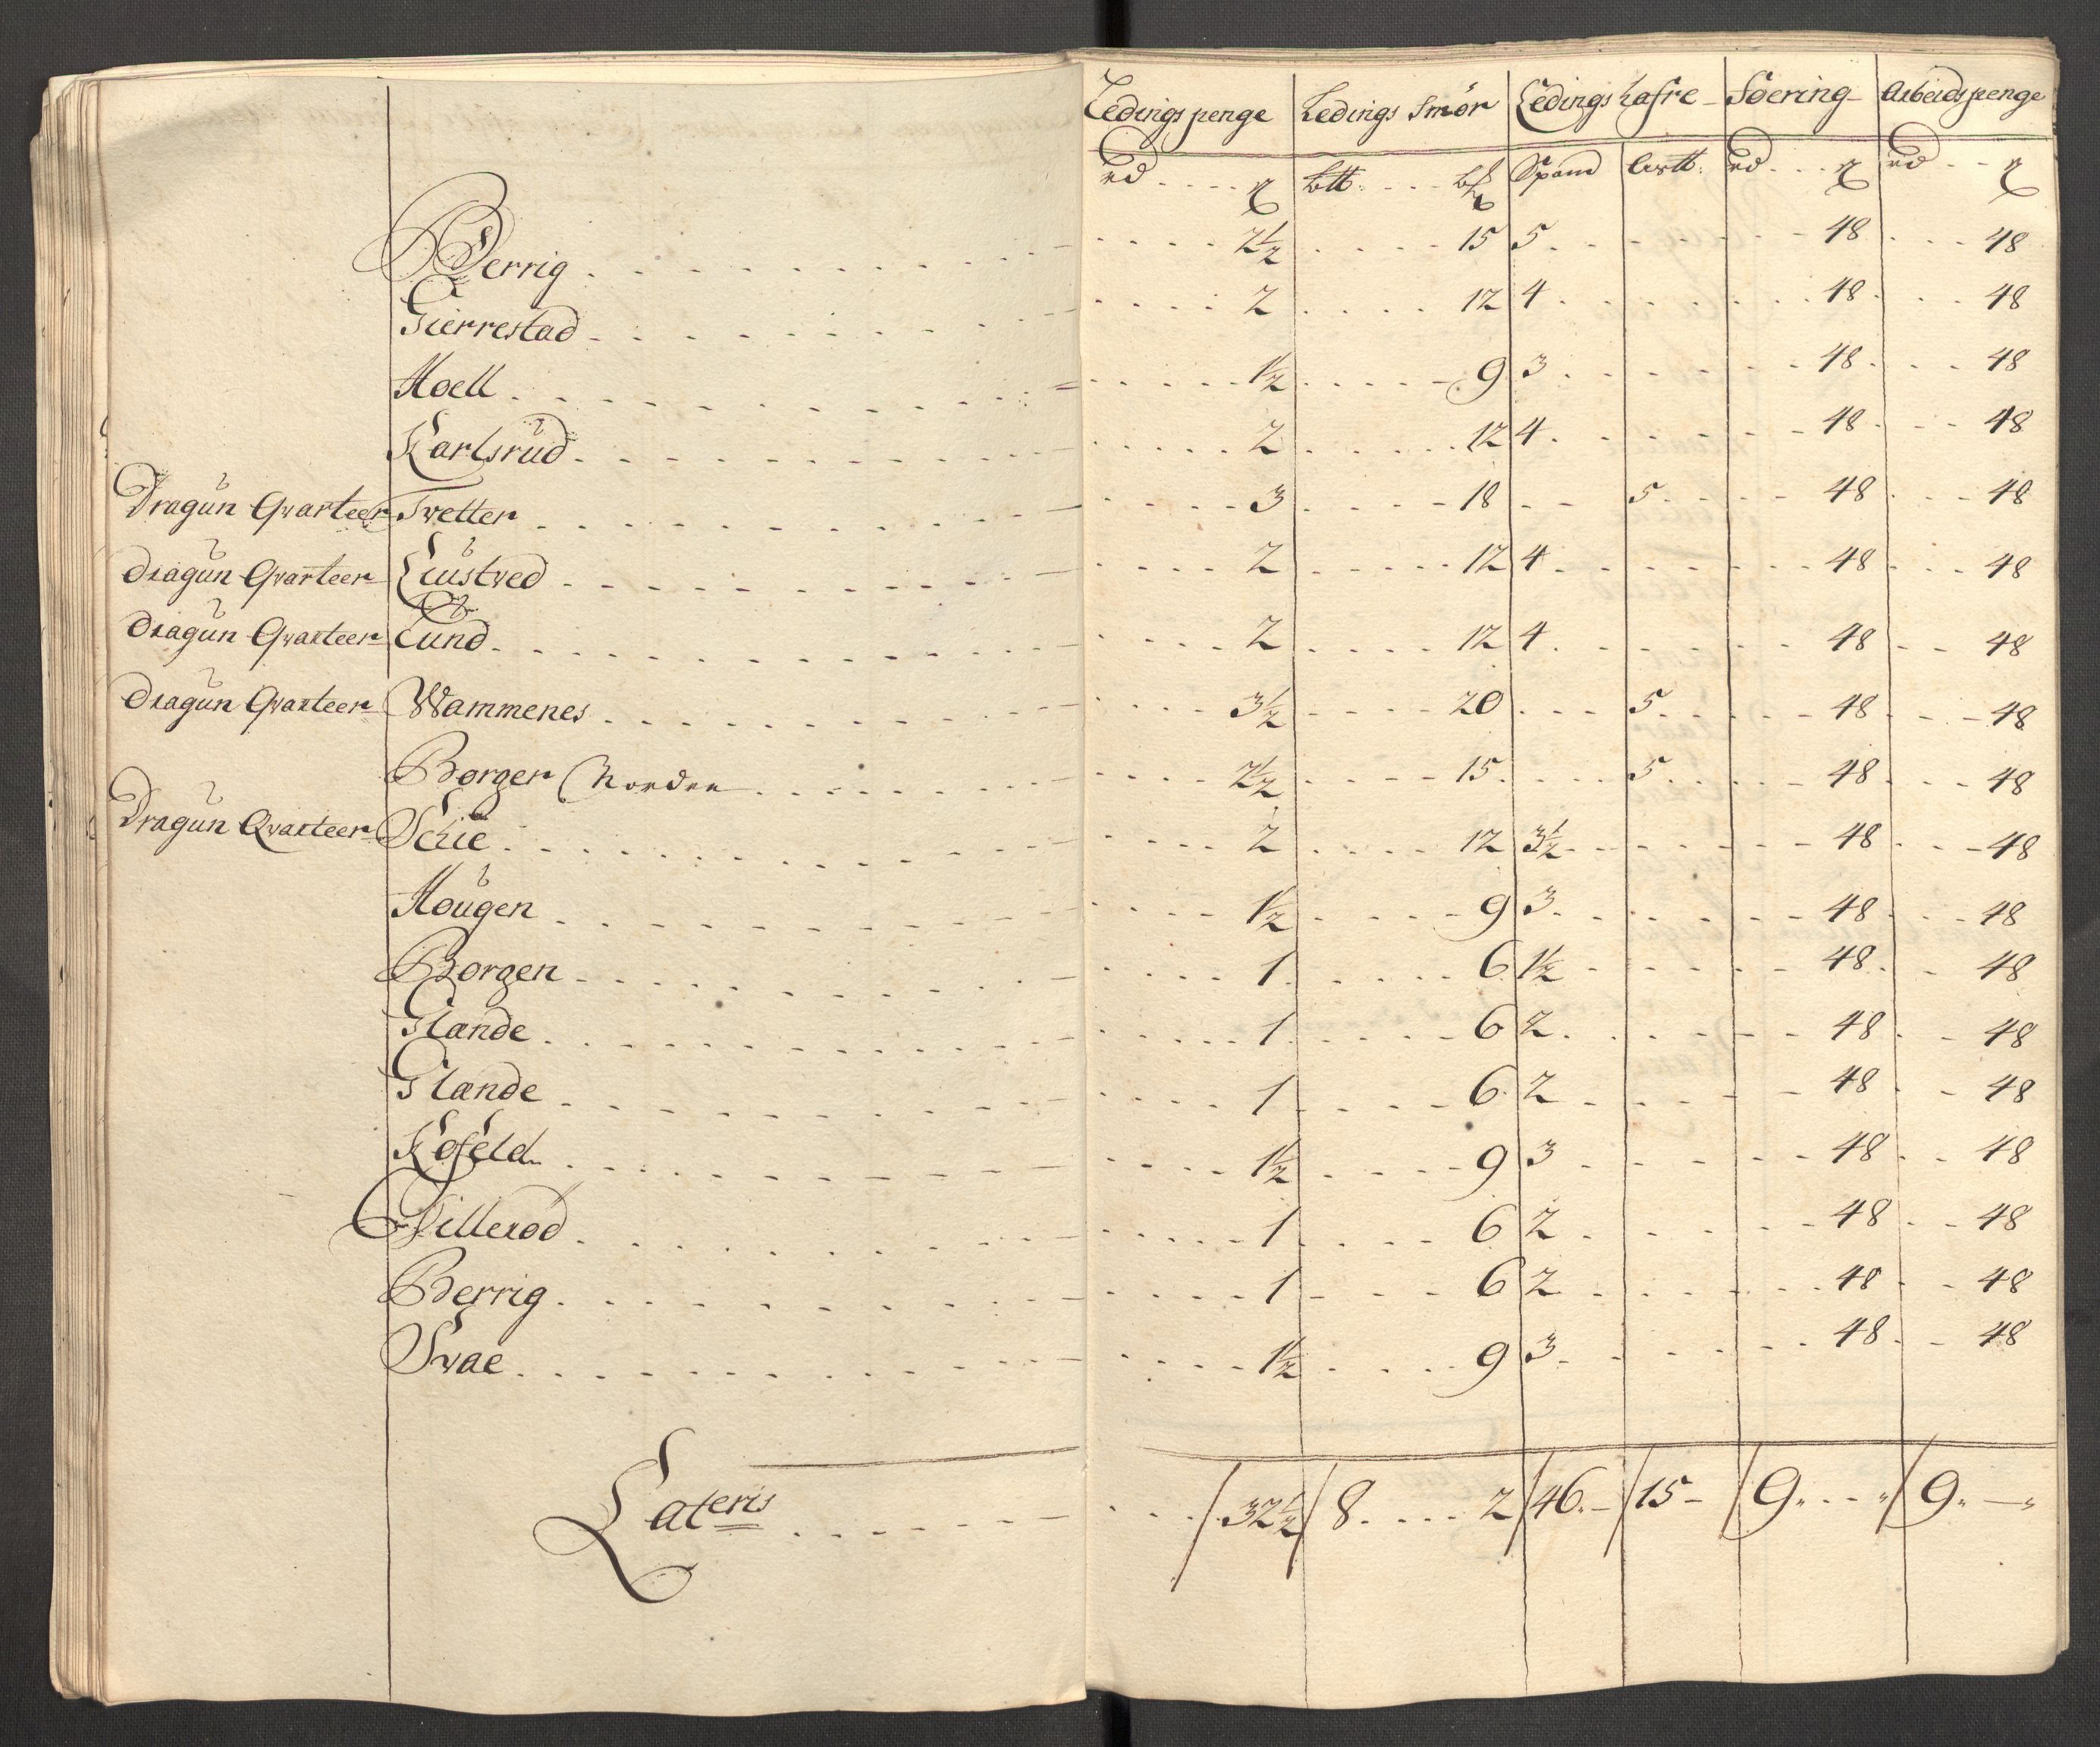 Ledings penge Ledings Smör Ledings hafre Söering Arbeids penge
rd ß btt: Spand rd ß rd ß
Berrig 2½ 15 5 48 48
Gierrestad 2 12 4 48 48
Hoell 1½ 9 3 48 48
Karlsrŭd 2 12 4 48 48
Dragŭn Qvarteer Tvetter 3 18 5 48 48
Dragŭn Qvarteer Liŭstved 2 12 4 48 48
Dragŭn Qvarteer Lŭnd 2 12 4 48 48
Dragŭn Qvarteer Wammenes 3½ 20 5 48 48
Borger Norden 2½ 15 5 48 48
Dragŭn Qvarteer Schie 2 12 3½ 48 48
Høŭgen 1½ 9 3 48 48
Borgen 1 6 1½ 48 48
Glænde 1 6 2 48 48
Glænde 1 6 2 48 48
Kofeld 1½ 9 3 48 48
Hillerød 1 6 2 48 48
Berrig 1 6 2 48 48
Svae 1½ 9 3 48 48
Lateris 32½ 8 2 46 15 9 9